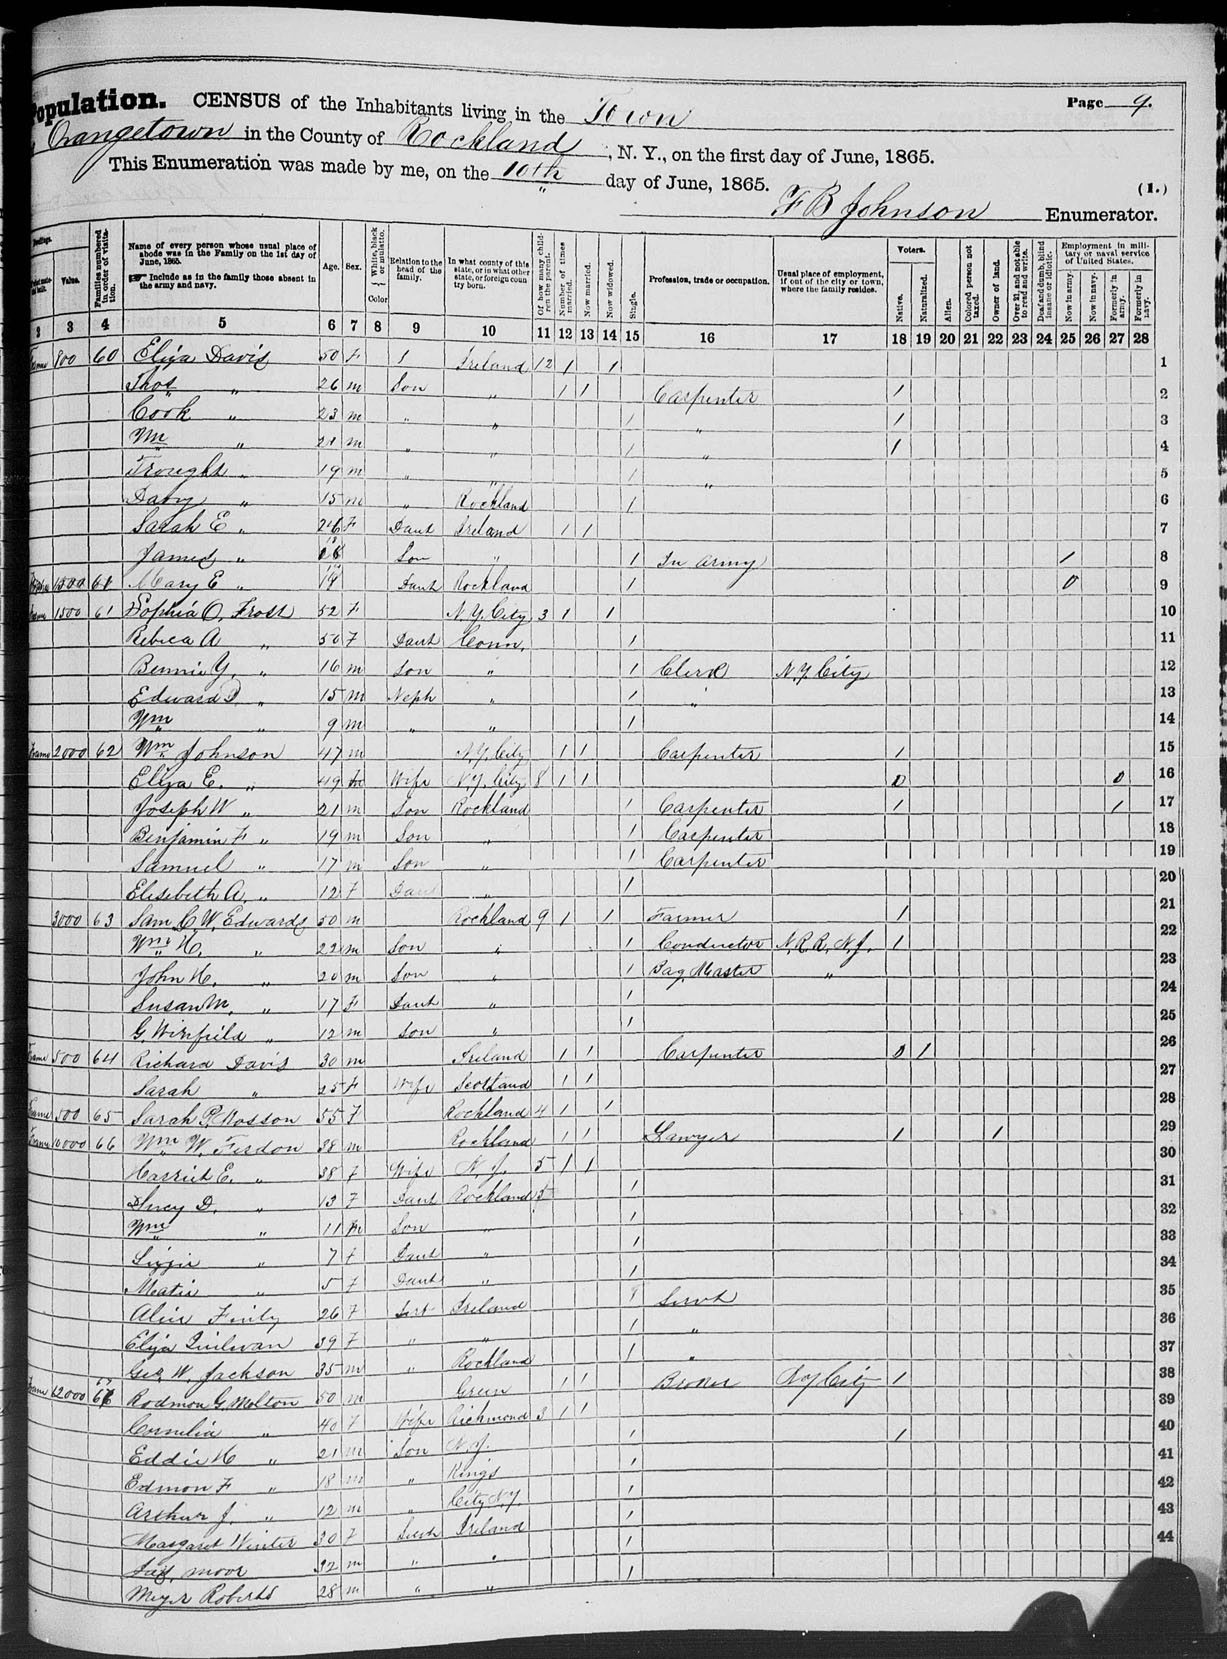 Population. CENSUS of the Inhabitants living in the Town Page 9.
Orangetown in the County of Rockland, N. Y., on the first day of June, 1865.
This Enumeration was made by me, on the 10th day of June, 1865. (1.)
F B Johnson Enumerator.
Value. Families numbered in order of visitation. Name of every person whose usual place of abode was in the Family on the 1st day of June, 1865. Include as in the family those absent in the army and navy. Age. Sex. White, black or mulatto. Color Relation to the head of the family. In what county of this state, or in what other state, or foreign country born. Of how many children the parent. Number of times married. Now married. Now widowed. Single. Profession, trade or occupation. Usual place of employment, if out of the city or town, where the family resides. Voters. Native. Naturalized. Alien. Colored person not taxed. Owner of land. Over 21, and not able to read and write. Deaf and dumb, blind insane or idiotic. Employment in military or naval service of United States. Now in army. Now in navy. Formerly in army. Formerly in navy.
2 3 4 5 6 7 8 9 10 11 12 13 14 15 16 17 18 19 20 21 22 23 24 25 26 27 28
Frame 800 60 Eliza Davis 50 F 1 Ireland 12 1 1 1
Thos " 26 m Son " 1 1 Carpenter 1 2
Cook " 23 m " " 1 " 1 3
Wm " 21 m " " 1 " 1 4
" 19 m " " 1 " 5
Davy " 15 m " Rockland 1 6
Sarah E " 26 F Daut Ireland 1 1 7
James " 18 Son " 1 In army 1 8
1500 61 Mary E " 19 Daut Rockland 1 0 9
Frame 1500 61 Sophia O. Frost 52 F N.Y. City 3 1 1 10
Rebica A " 50 F Daut Conn. 1 11
Bennie Y. " 16 m Son " 1 Clerk N.Y. City 12
Edward D. " 15 m Neph " 1 " 13
Wm " 9 m " " 1 14
Frame 2000 62 Wm Johnson 47 m N.Y. City 1 1 Carpenter 1 15
Eliza E. " 49 Wife N.Y. City 8 1 1 0 0 16
Joseph W " 21 m Son Rockland 1 Carpenter 1 1 17
Benjamin F " 19 m Son " 1 Carpenter 18
Samuel " 17 m Son " 1 Carpenter 19
Elisebeth A. " 12 F Daut " 1 20
3000 63 Sam C. W. Edwards 50 m Rockland 9 1 1 Farmer 1 21
Wm H. " 22 m Son " 1 Conductor N.R.R. N.J. 1 22
John H. " 20 m Son " 1 Bag. Master " 23
Susan M. " 17 F Daut " 1 24
G. Winfield " 12 m Son " 1 25
Frame 500 64 Richard Davis 30 m Ireland 1 1 Carpenter 0 1 26
Sarah " 25 F Wife Scotland 1 1 27
Frame 500 65 Sarah P. Wosson 55 F Rockland 4 1 1 28
Frame 10000 66 Wm W. Ferdon 38 m Rockland 1 1 Lawyer 1 1 29
Harriet E. " 38 F Wife N.J. 5 1 1 30
D. " 13 F Daut Rockland 5 1 31
Wm " 11 m Son " 1 32
Lizzie " 7 F Daut " 1 33
Matie " 5 F Daut " 1 34
Alice Finly 26 F Sert Ireland 1 Servt 35
Eliza 39 F " " 1 " 36
Geo W. Jackson 35 m " Rockland 1 " 37
Frame 62000 67 Rodmon G. Molton 50 m Green 1 1 Broker N.Y. City 1 38
Cornelia " 40 F Wife Richmond 3 1 1 39
Eddie H " 21 m Son N.J. 1 1 40
Edmon F " 18 m " Kings 1 41
Arthur J. " 12 m " City N.Y. 1 42
Margaret Winter 30 F Servt Ireland 1 43
moor 32 m " " 1 44
Meyer Roberts 28 m " " 1